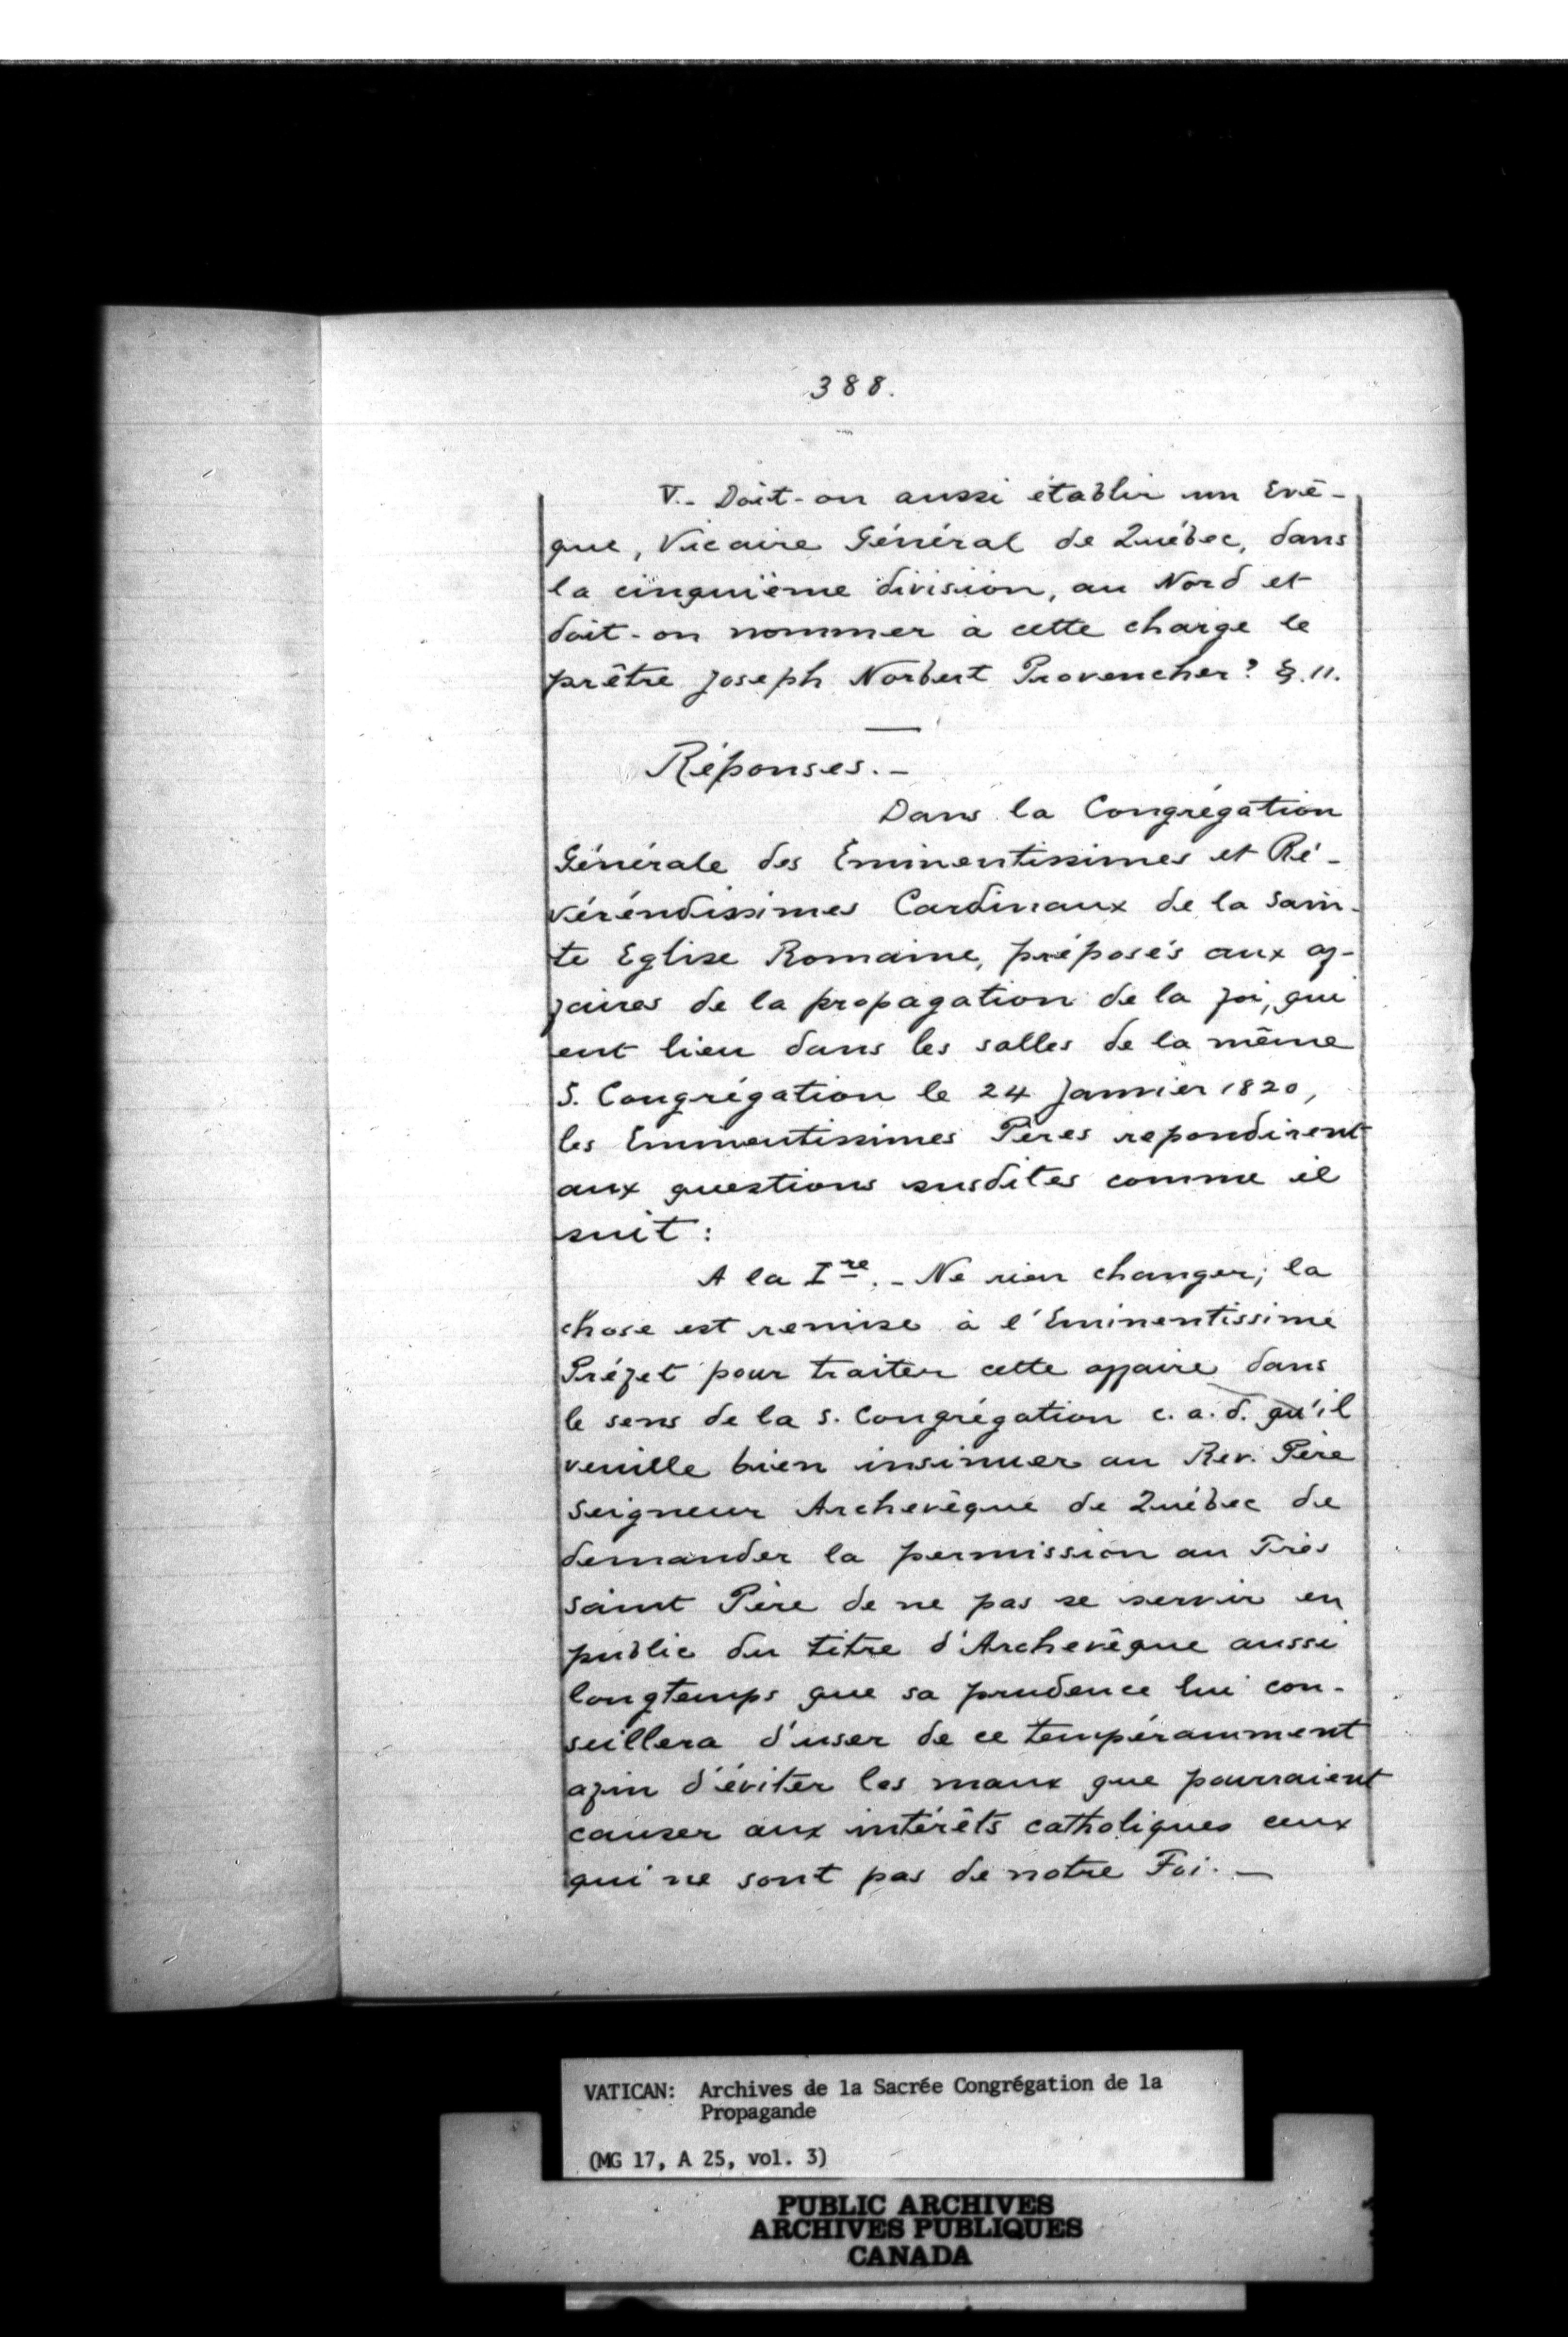 388.
V.- Doit-on aussi établir un Evê-
que, Vicaire Général de Québec, dans
la cinquième division, au Nord et
doit-on nommer à cette charge le
prêtre Joseph Norbert Provencher? §.11.
Réponses.-
Dans la Congrégation
Générale des Eminentissimes et Ré-
véréndissimes Cardinaux de la Sain-
te Eglise Romaine, préposés aux af-
faires de la propagation de la foi, qui
eut lieu dans les salles de la même
S. Congrégation le 24 Janvier 1820,
les Eminentissimes Pères repondirent
aux questions susdites comme il
suit:
A la Ire.- Ne rien changer; la
chose est remise à l'Eminentissime
Préfet pour traiter cette affaire dans
le sens de la S. Congrégation c.a.d. qu'il
veuille bien insinuer au Rev. Père
Seigneur Archevêque de Québec de
demander la permission au Très
Saint Père de ne pas se servir en
public du titre d'Archevêque aussi
longtemps que sa prudence lui con-
seillera d'user de ce tempéramment
afin d'éviter les maux que pourraient
causer aux intérêts catholiques ceux
qui ne sont pas de notre Foi.-
VATICAN: Archives de la Sacrée Congrégation de la
Propagande
(MG 17, A 25, vol. 3)
PUBLIC ARCHIVES
ARCHIVES PUBLIQUES
CANADA